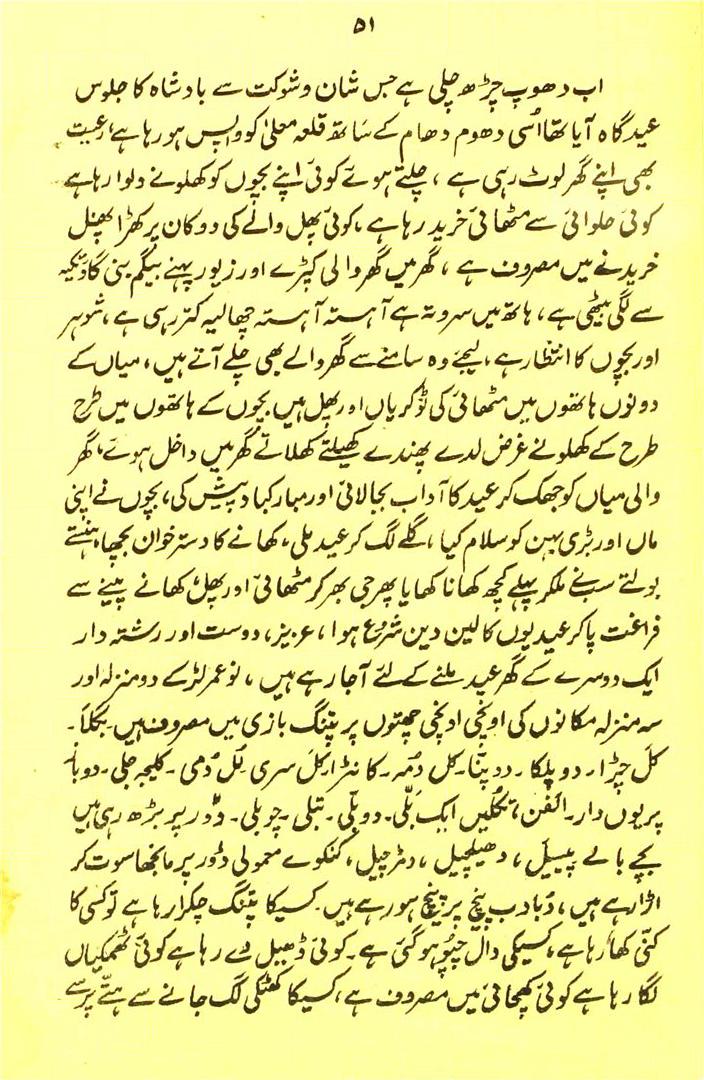 ۵۱
اب دھوپ چڑھ چلی ہے جس شان و شوکت سے بادشاہ کا جلوس
عیدگاہ آیا تھا اُسی دھوم دھام کے ساتھ قلعہ معلیٰ کو واپس ہو رہا ہے، رعیت
بھی اپنے گھر لوٹ رہی ہے ، چلتے ہوئے کوئی اپنے بچوں کو کھلونے دلوا رہا ہے
کوئی حلوائی سے مٹھائی خرید رہا ہے ، کوئی پھل والے کی دوکان پر کھڑا پھل
خریدنے میں مصروف ہے ، گھر میں گھر والی کپڑے اور زیور پہنے بیگم بنی گاؤ تکیہ
سے لگی بیٹھی ہے ، ہاتھ میں سروتہ ہے آہستہ آہستہ چھالیہ کتر رہی ہے ، شوہر
اور بچوں کا انتظار ہے ، لیجئے وہ سامنے سے گھر والے بھی چلے آتے ہیں ، میاں کے
دونوں ہاتھوں میں مٹھائی کی ٹوکریاں اور پھل ہیں بچوں کے ہاتھوں میں طرح
طرح کے کھلونے غرض لدے پھندے کھیلتے کھلاتے گھر میں داخل ہوئے ، گھر
والی میاں کو جھک کر عید کا آداب بجا لائی اور مبارکباد پیش کی ، بچوں نے اپنی
ماں اور بڑی بہن کو سلام کیا ، گلے لگ کر عید ملی ، کھانے کا دسترخوان بچھا ، ہنستے
بولتے سب نے ملکر پہلے کچھ کھانا کھایا پھر جی بھر کر مٹھائی اور پھل ، کھانے پینے سے
فراغت پا کر عیدیوں کا لین دین شروع ہوا ، عزیز ، دوست اور رشتہ دار
ایک دوسرے کے گھر عید ملنے کے لئے آجا رہے ہیں ، نوعمر لڑکے دو منزلہ اور
سہ منزلہ مکانوں کی اونچی اونچی چھتوں پر پتنگ بازی میں مصروف ہیں۔ بگلا۔
کل چڑا۔ دو پلکا۔ دو پنّا۔ کل دُمہ۔ کانڑا۔ کل سری کل دُمی۔ کلیجہ جلی۔ دوباز
پریوں دار۔ الفن، تکلیں ایک بلّی۔ دو بلّی۔ تبلی۔ چوبلی۔ ڈور پر بڑھ رہی ہیں
بچے بالے پیسیل ، دھیلچیل ، دمڑچیل ، کنکوے معمولی ڈور پر مانجھا سوت کر
اڑا رہے ہیں ، دبادب پیچ پر پیچ ہو رہے ہیں۔ کسیکا پتنگ چکرا رہا ہے تو کسی کا
کنّی کھا رہا ہے ، کسیکی دال چپّو ہو گئی ہے۔ کوئی ڈھیل دے رہا ہے کوئی ٹھمکیاں
لگا رہا ہے کوئی کھچائی میں مصروف ہے ، کسیکا کھٹکی لگ جانے سے ہتّے پر سے